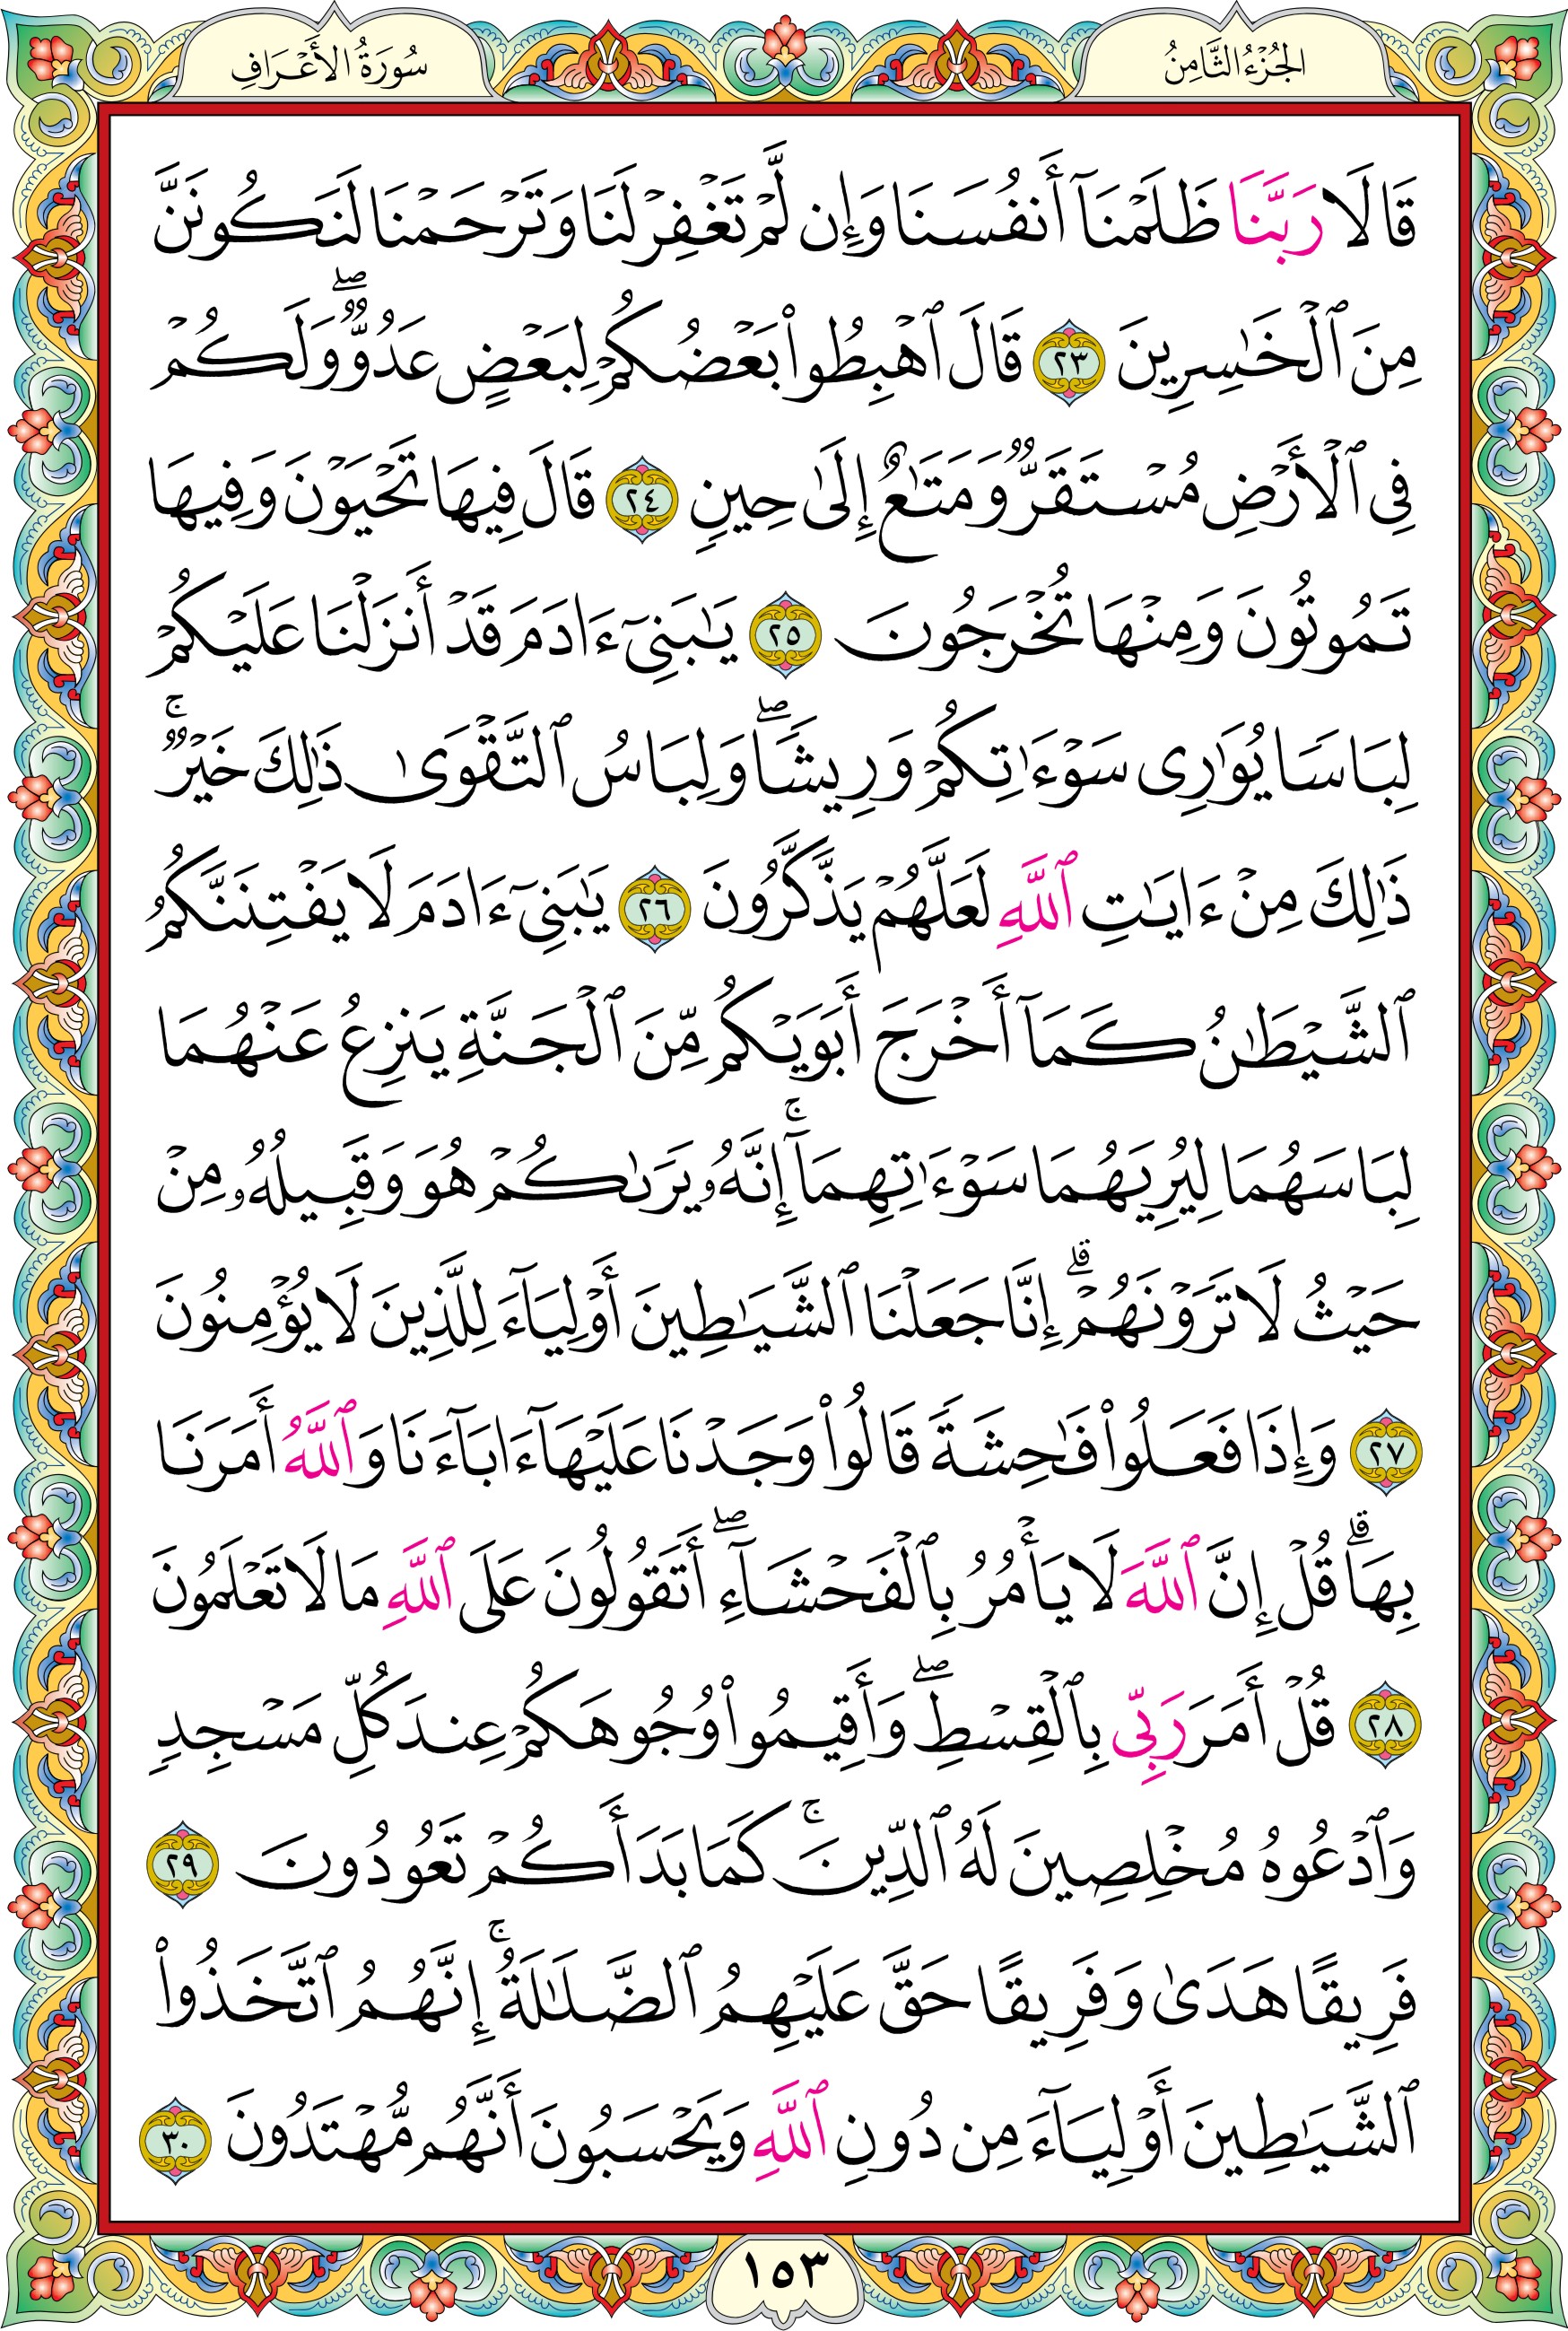 الجُزْءُ الثَّامِنُ
سُورَةُ الأَعْرَافِ
قَالَا رَبَّنَا ظَلَمْنَآ أَنفُسَنَا وَإِن لَّمْ تَغْفِرْ لَنَا وَتَرْحَمْنَا لَنَكُونَنَّ
مِنَ ٱلْخَـٰسِرِينَ ٢٣ قَالَ ٱهْبِطُوا۟ بَعْضُكُمْ لِبَعْضٍ عَدُوٌّ ۖ وَلَكُمْ
فِى ٱلْأَرْضِ مُسْتَقَرٌّ وَمَتَـٰعٌ إِلَىٰ حِينٍ ٢٤ قَالَ فِيهَا تَحْيَوْنَ وَفِيهَا
تَمُوتُونَ وَمِنْهَا تُخْرَجُونَ ٢٥ يَـٰبَنِىٓ ءَادَمَ قَدْ أَنزَلْنَا عَلَيْكُمْ
لِبَاسًا يُوَٰرِى سَوْءَٰتِكُمْ وَرِيشًا ۖ وَلِبَاسُ ٱلتَّقْوَىٰ ذَٰلِكَ خَيْرٌ ۚ
ذَٰلِكَ مِنْ ءَايَـٰتِ ٱللَّهِ لَعَلَّهُمْ يَذَّكَّرُونَ ٢٦ يَـٰبَنِىٓ ءَادَمَ لَا يَفْتِنَنَّكُمُ
ٱلشَّيْطَـٰنُ كَمَآ أَخْرَجَ أَبَوَيْكُم مِّنَ ٱلْجَنَّةِ يَنزِعُ عَنْهُمَا
لِبَاسَهُمَا لِيُرِيَهُمَا سَوْءَٰتِهِمَآ ۚ إِنَّهُۥ يَرَىٰكُمْ هُوَ وَقَبِيلُهُۥ مِنْ
حَيْثُ لَا تَرَوْنَهُمْ ۗ إِنَّا جَعَلْنَا ٱلشَّيَـٰطِينَ أَوْلِيَآءَ لِلَّذِينَ لَا يُؤْمِنُونَ
٢٧ وَإِذَا فَعَلُوا۟ فَـٰحِشَةً قَالُوا۟ وَجَدْنَا عَلَيْهَآ ءَابَآءَنَا وَٱللَّهُ أَمَرَنَا
بِهَا ۗ قُلْ إِنَّ ٱللَّهَ لَا يَأْمُرُ بِٱلْفَحْشَآءِ ۖ أَتَقُولُونَ عَلَى ٱللَّهِ مَا لَا تَعْلَمُونَ
٢٨ قُلْ أَمَرَ رَبِّى بِٱلْقِسْطِ ۖ وَأَقِيمُوا۟ وُجُوهَكُمْ عِندَ كُلِّ مَسْجِدٍ
وَٱدْعُوهُ مُخْلِصِينَ لَهُ ٱلدِّينَ ۚ كَمَا بَدَأَكُمْ تَعُودُونَ ٢٩
فَرِيقًا هَدَىٰ وَفَرِيقًا حَقَّ عَلَيْهِمُ ٱلضَّلَـٰلَةُ ۗ إِنَّهُمُ ٱتَّخَذُوا۟
ٱلشَّيَـٰطِينَ أَوْلِيَآءَ مِن دُونِ ٱللَّهِ وَيَحْسَبُونَ أَنَّهُم مُّهْتَدُونَ ٣٠
١٥٣